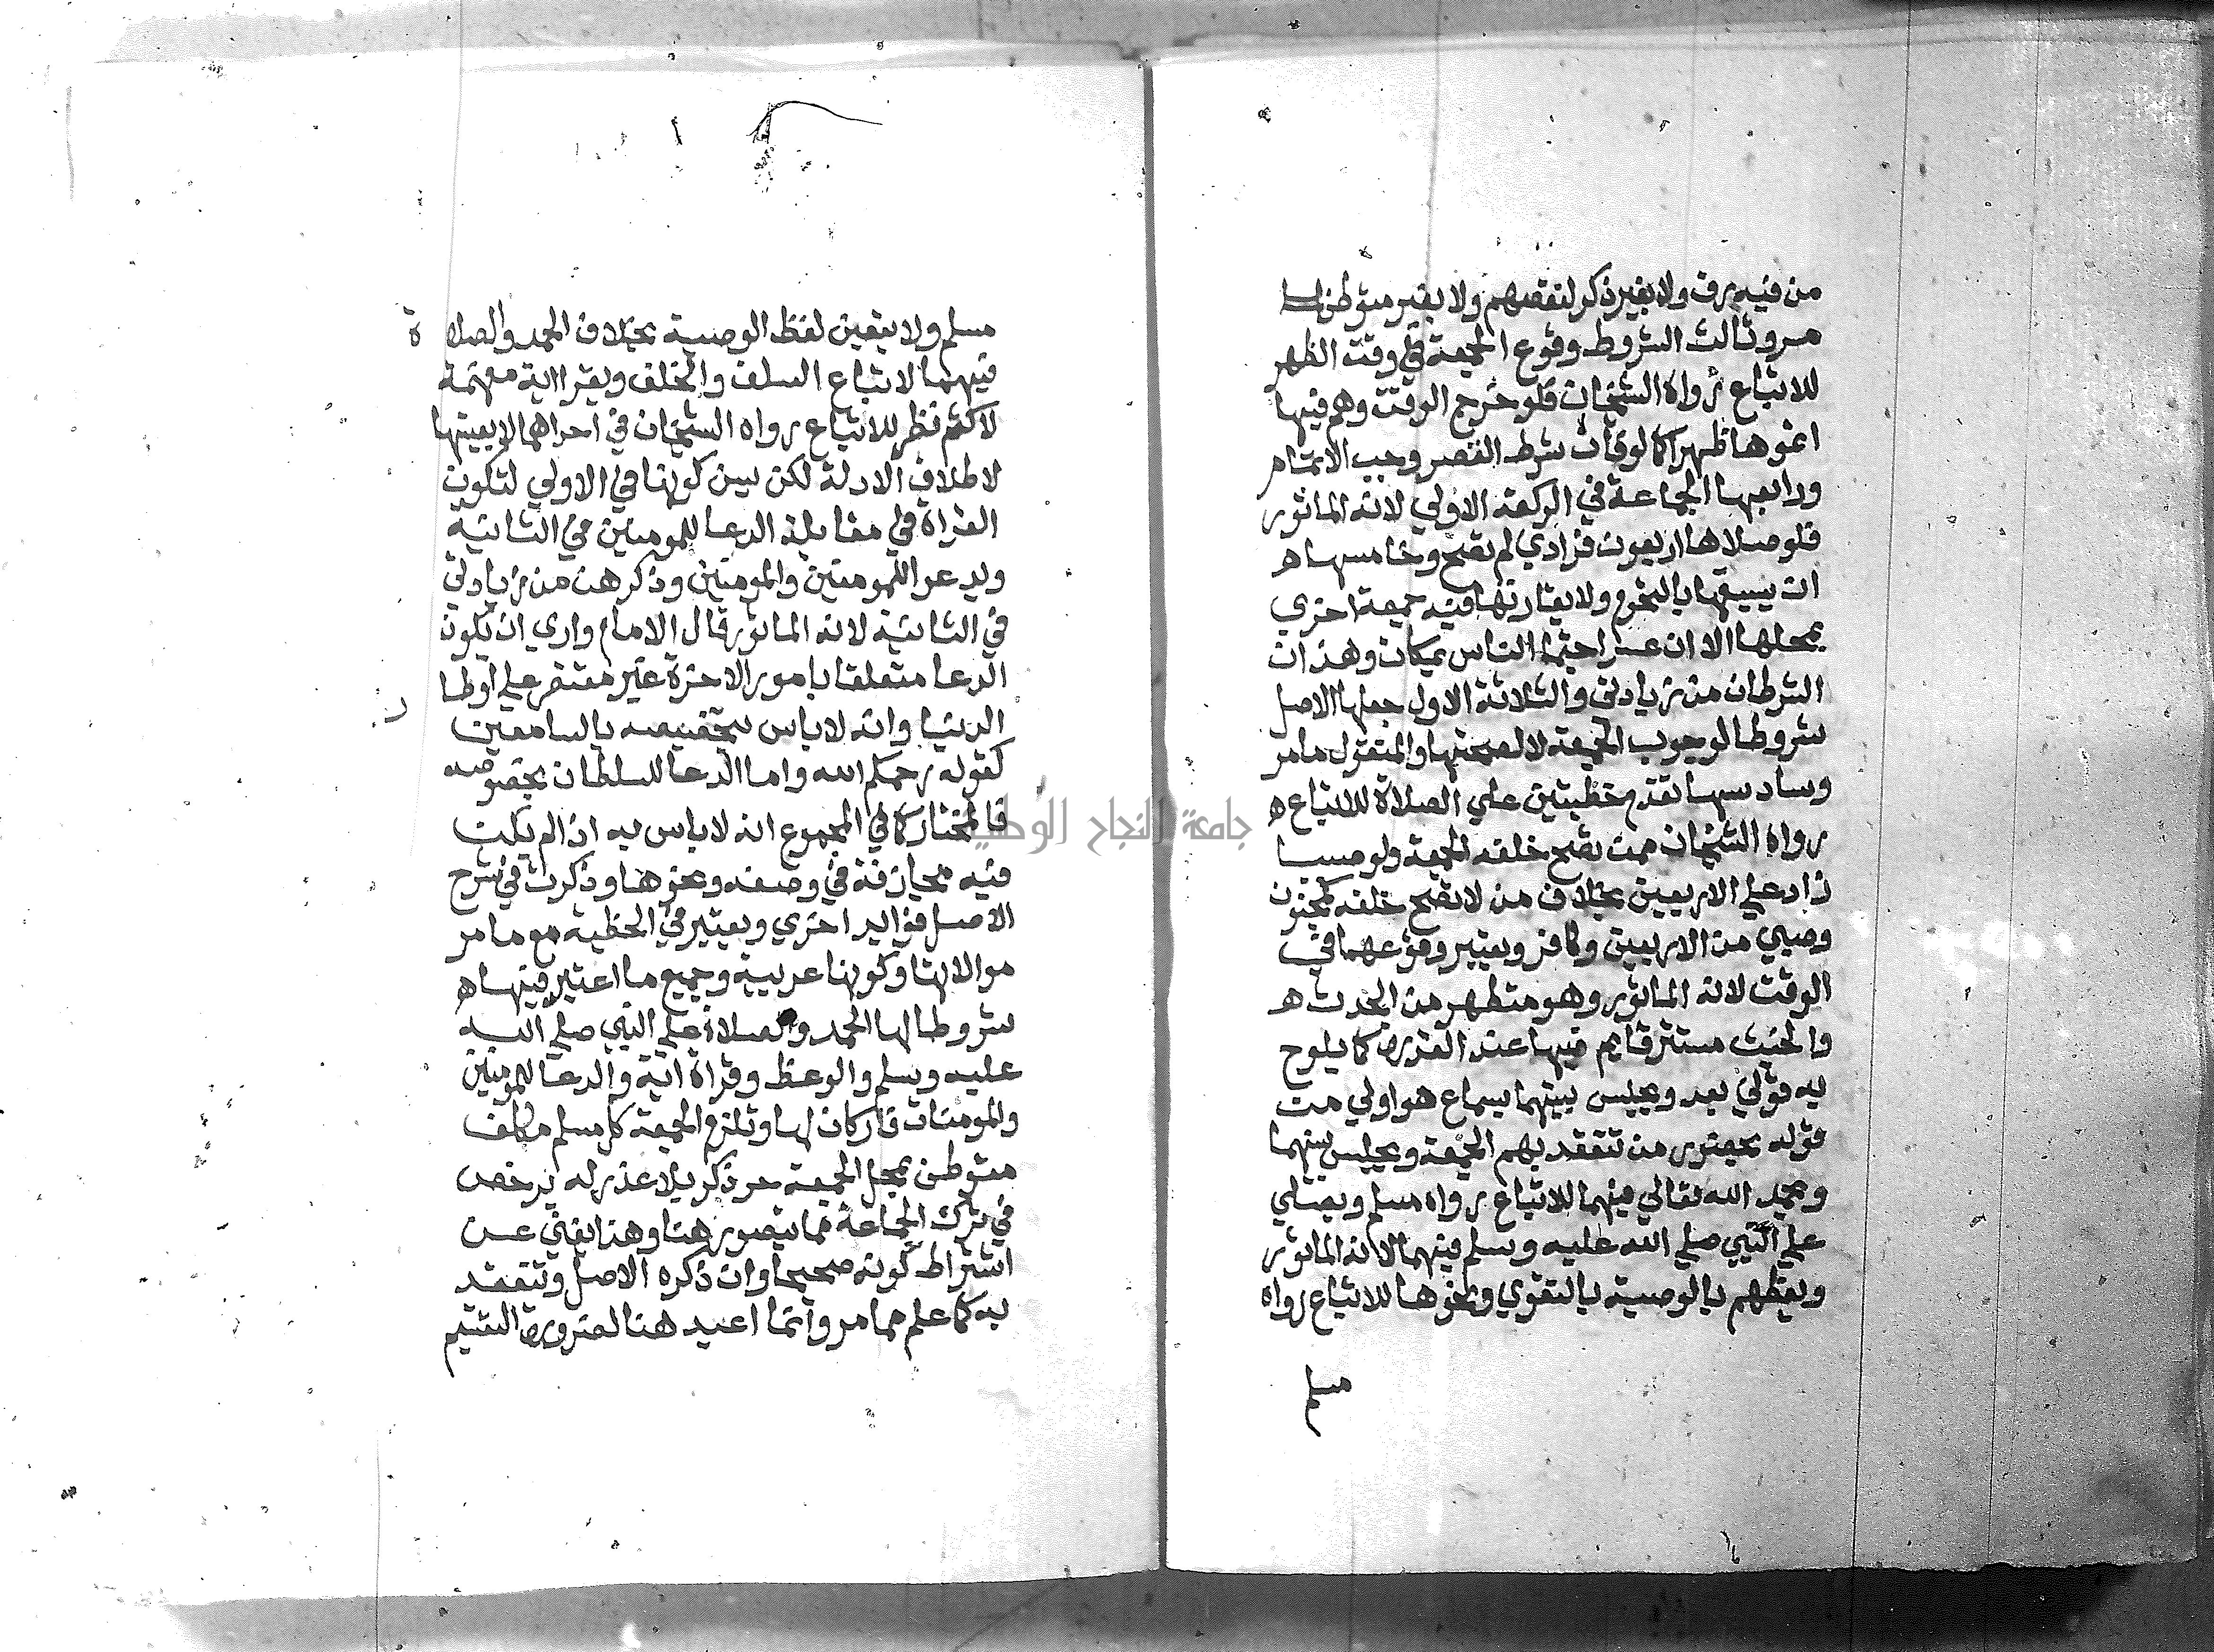 من فيه رق ولا بغير ذكر لنقصهم ولا بغير متوطن لما
مر وثالث الشروط وقوع الجمعة في وقت الظهر
للاتباع رواه الشيخان فلو خرج الوقت وهم فيها
اتموها ظهرا كما لو فات شرط القصر وجب الاتمام
ورابعها الجماعة في الركعة الاولي لانه الماثور
فلو صلاها اربعون فرادي لم تصح وخامسها ه
ان يسبقها بالتحرم ولا يقارنها فيه جمعة اخري
بمحلها الا ان عسر اجتماع الناس بمكان وهذان
الشرطان من زيادتي والثلاثة الاول جعلها الاصل
شروطا لوجوب الجمعة لا لصحتها والمنقول ما مر
وسادسها تقدم خطبتين علي الصلاة للاتباع ه
رواه الشيخان ممن تصح خلفه الجمعة ولو صبيا
زاد علي الاربعين بخلاف من لا تصح خلفه كمجنون
وصبي من الاربعين وكافر ويعتبر وقوعهما في
الوقت لانه الماثور وهو متطهر من الحدث ه
والخبث مستتر قايم فيها عند القدرة كما يلوح
به قولي بعد ويجلس بينهما بسماع هو اولي من
قوله بحضور من تنعقد بهم الجمعة ويجلس بينهما
ويحمد الله تعالي فيهما للاتباع رواه مسلم ويصلي
علي النبي صلي الله عليه وسلم فيهما لانه الماثور
ويعظهم بالوصية بالتقوي ونحوها للاتباع رواه
مسلم
مسلم ولا يتعين لفظ الوصية بخلاف الحمد والصلاة
فيهما لاتباع السلف والخلف ويقرا اية مفهمة
لا كثم نظر للاتباع رواه الشيخان في احداهما لا بعينها
لاطلاق الادلة لكن يسن كونها في الاولي لتكون
القراة في مقابلة الدعا للمومنين في الثانية
ويدعو للمومنين والمومنين وذكرهن من زيادتي
في الثانية لانه الماثور قال الامام واري ان يكون
الدعا متعلقا بامور الاخرة غير مقتصر علي اوطا
ر الدنيا وانه لا باس بتخصيصه بالسامعين
كقوله رحمكم الله واما الدعا للسلطان بخصوصه
فالمختار كما في المجموع انه لا باس به اذا لم يكن
فيه مجازفة في وصفه ونحوها وذكرت في شرح
الاصل فوايد اخري ويعتبر في الخطبة مع ما مر
موالاتها وكونها عربية وجميع ما اعتبر فيها ه
شروط لها الا الحمد والصلاة علي النبي صلي الله
عليه وسلم والوعظ وقراة اية والدعا للمومنين
والمومنات فاركان لها وتلزم الجمعة كل مسلم مكلف
متوطن بمحل الجمعة حر ذكر بلا عذر له يرخص
في ترك الجماعة مما يتصور هنا وهذا يغني عن
اشتراط كونه صحيحا وان ذكره الاصل وتنعقد
به كما علم مما مر وانما اعيد هنا لضرورة التتميم